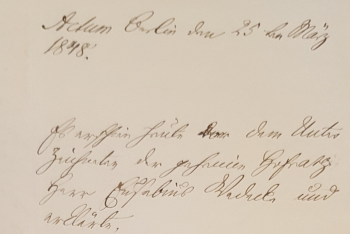 Actum Berlin den 25ten März
1848.
Es erschien heute vor dem Unter
zeichneten der geheime Hofrath
Herr Eusebius Wedecke und
erklärte.